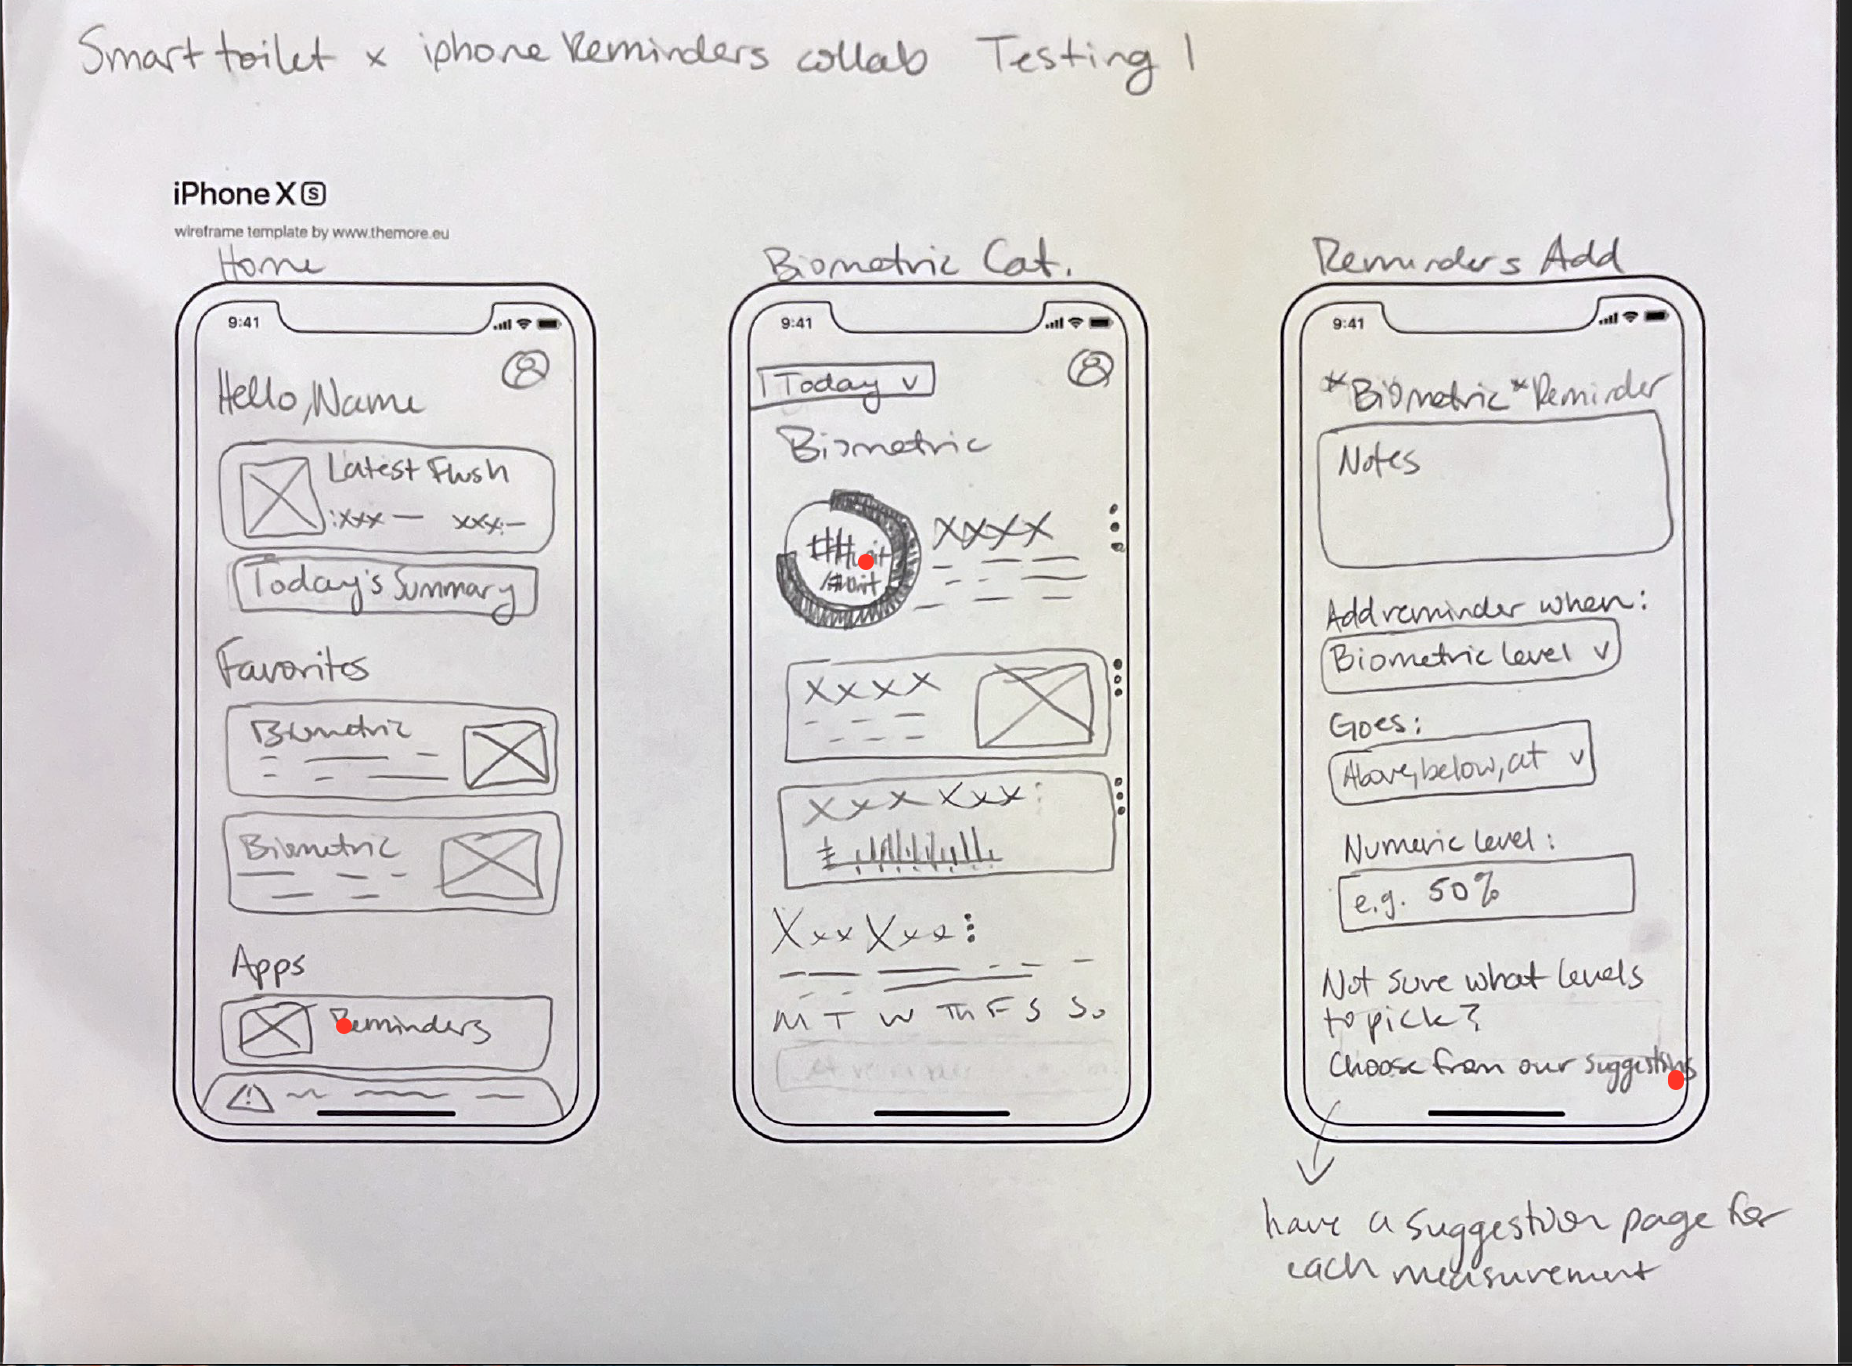 Smart toilet x iphone Reminders collab Testing 1
iPhone X S
wireframe template by www.themore.eu
Home
9:41
Hello, Name
Latest Flush
:xxx — xxx:—
Today's Summary
Favorites
Biometric
Biometric
Apps
Reminders
!
Biometric Cat.
9:41
Today v
Biometric
##unit
/#unit
XXXX
XXXX
XXX XXX:
Xxx Xxx:
M T W Th F S Su
Reminders Add
9:41
*Biometric* Reminder
Notes
Add reminder when:
Biometric level v
Goes:
Above, below, at v
Numeric level:
e.g. 50%
Not sure what levels
to pick?
Choose from our suggestions
have a suggestion page for
each measurement